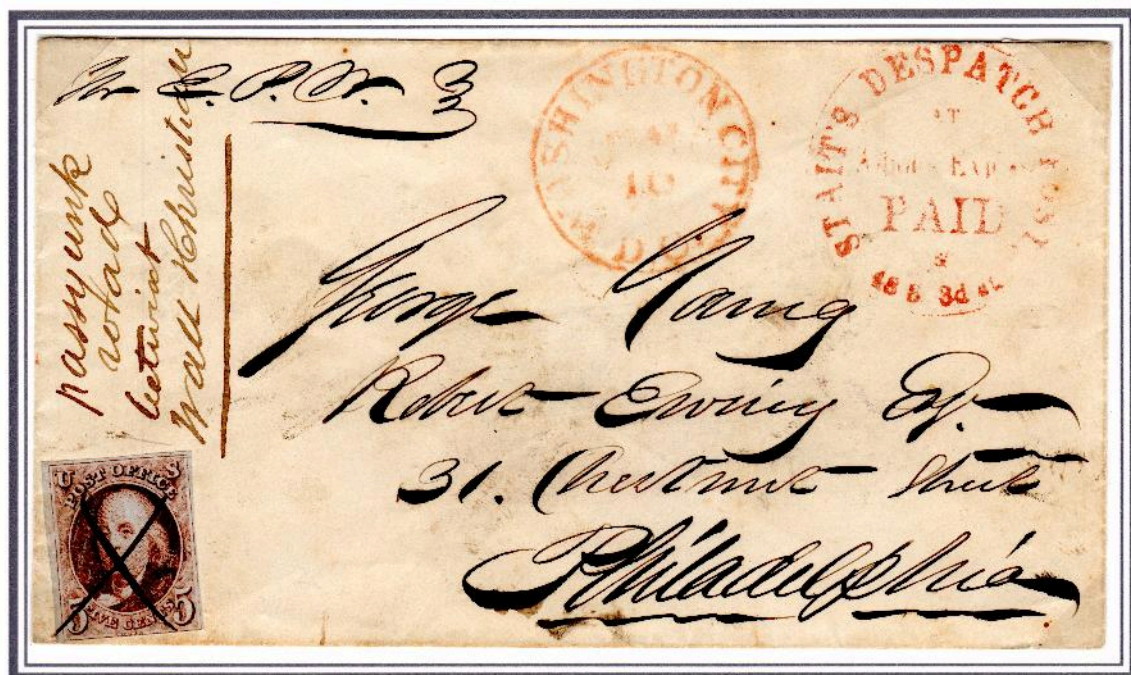 passyunk
road
betwixt
Wall & Christian
WASHINGTON CITY
D.C.
STAIT'S DESPATCH POST
AT
Adams Express
PAID
&
48 S 3d St.
George Young
Robert Ewing Esq.
31. Chestnut Street
Philadelphia
U S
POST OFFICE
5 FIVE CENTS 5